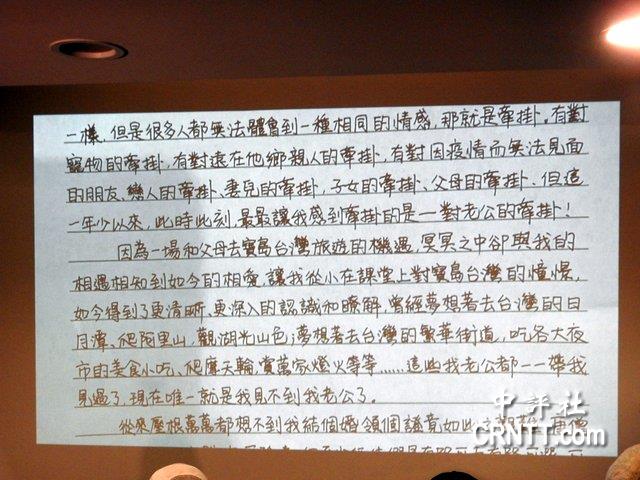 一樣，但是很多人都無法體會到一種相同的情感，那就是牽掛，有對
寵物的牽掛，有對遠在他鄉親人的牽掛，有對因疫情而無法見面
的朋友、戀人的牽掛、妻兒的牽掛，子女的牽掛、父母的牽掛。但這
一年少以來，此時此刻，最最讓我感到牽掛的是一對老公的牽掛！
因為一場和父母去寶島台灣旅遊的機遇，冥冥之中卻與我的
相遇相知到如今的相愛，讓我從小在課堂上對寶島台灣的憧憬，
如今得到了更清晰，更深入的認識和瞭解，曾經夢想著去台灣的日
月潭、爬阿里山，觀湖光山色；夢想著去台灣的繁華街道，吃各大夜
市的美食小吃、爬摩天輪，賞萬家燈火等等……這些我老公都一一帶我
見過了，現在唯一就是我見不到我老公了。
從來壓根萬萬都想不到我結個婚領個證竟如此
中評社
CRNTT.com